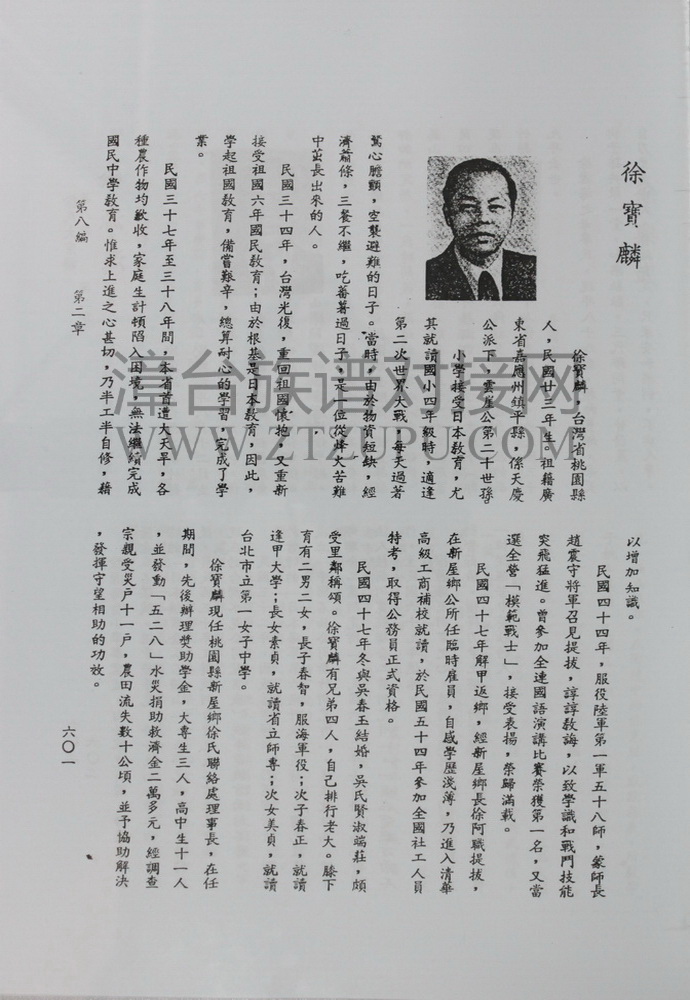 徐寶麟
徐寶麟，台灣省桃園縣
人，民國廿三年生，祖籍廣
東省嘉應州鎮平縣，係天慶
公派下，雲崖公第二十世孫。
小學接受日本教育，尤
其就讀國小四年級時，適逢
第二次世界大戰，每天過著
驚心膽顫，空襲避難的日子。當時，由於物資短缺，經
濟蕭條，三餐不繼，吃蕃薯過日子，是一位從烽火苦難
中茁長出來的人。
民國三十四年，台灣光復，重回祖國懷抱，又重新
接受祖國六年國民教育；由於根基是日本教育，因此，
學起祖國教育，備嘗艱辛，總算耐心的學習，完成了學
業。
民國三十七年至三十八年間，本省首遭大天旱，各
種農作物均歉收，家庭生計頓陷入困境，無法繼續完成
國民中學教育。惟求上進之心甚切，乃半工半自修，藉
第八編　第二章
以增加知識。
民國四十四年，服役陸軍第一軍五十八師，蒙師長
趙震守將軍召見提拔，諄諄教誨，以致學識和戰鬥技能
突飛猛進。曾參加全連國語演講比賽榮獲第一名，又當
選全營「模範戰士」，接受表揚，榮歸滿載。
民國四十七年解甲返鄉，經新屋鄉長徐阿職提拔，
在新屋鄉公所任臨時雇員，自感學歷淺薄，乃進入清華
高級工商補校就讀，於民國五十四年參加全國社工人員
特考，取得公務員正式資格。
民國四十七年冬與吳春玉結婚，吳氏賢淑端莊，頗
受里鄰稱頌。徐寶麟有兄弟四人，自己排行老大。膝下
育有二男二女，長子春智，服海軍役；次子春正，就讀
逢甲大學；長女素貞，就讀省立師專；次女美貞，就讀
台北市立第一女子中學。
徐寶麟現任桃園縣新屋鄉徐氏聯絡處理事長，在任
期間，先後辦理獎助學金，大專生三人，高中生十一人
，並發動「五二八」水災捐助救濟金二萬多元，經調查
宗親受災戶十一戶，農田流失數十公頃，並予協助解決
，發揮守望相助的功效。
六〇一
漳台族谱对接网
WWW.ZTZUPU.COM